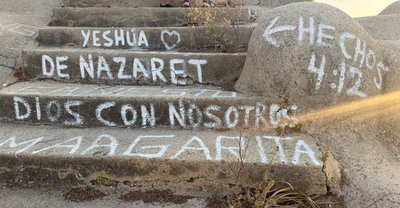 YESHÚA ♡
DE NAZARET
DIOS CON NOSOTROS
MARGARITA
← HECHOS
4:12